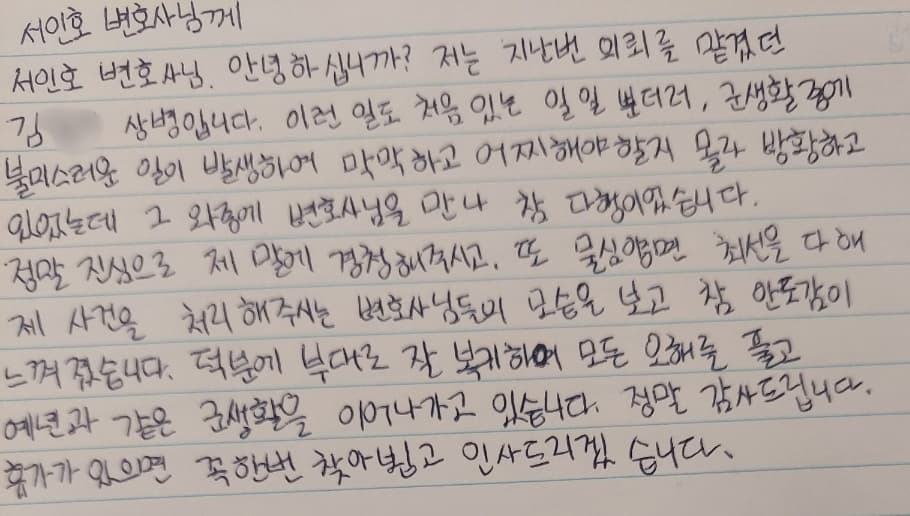 서인호 변호사님께
서인호 변호사님. 안녕하십니까? 저는 지난번 의뢰를 맡겼던
김 상병입니다. 이런 일도 처음 있는 일 일 뿐더러, 군생활 중에
불미스러운 일이 발생하여 막막하고 어찌해야할지 몰라 방황하고
있었는데 그 와중에 변호사님을 만나 참 다행이었습니다.
정말 진심으로 제 말에 경청해주시고, 또 물심양면 최선을 다 해
제 사건을 처리해주시는 변호사님들의 모습을 보고 참 안도감이
느껴졌습니다. 덕분에 부대로 잘 복귀하여 모든 오해를 풀고
예년과 같은 군생활을 이어나가고 있습니다. 정말 감사드립니다.
휴가가 있으면 꼭한번 찾아뵙고 인사드리겠습니다.